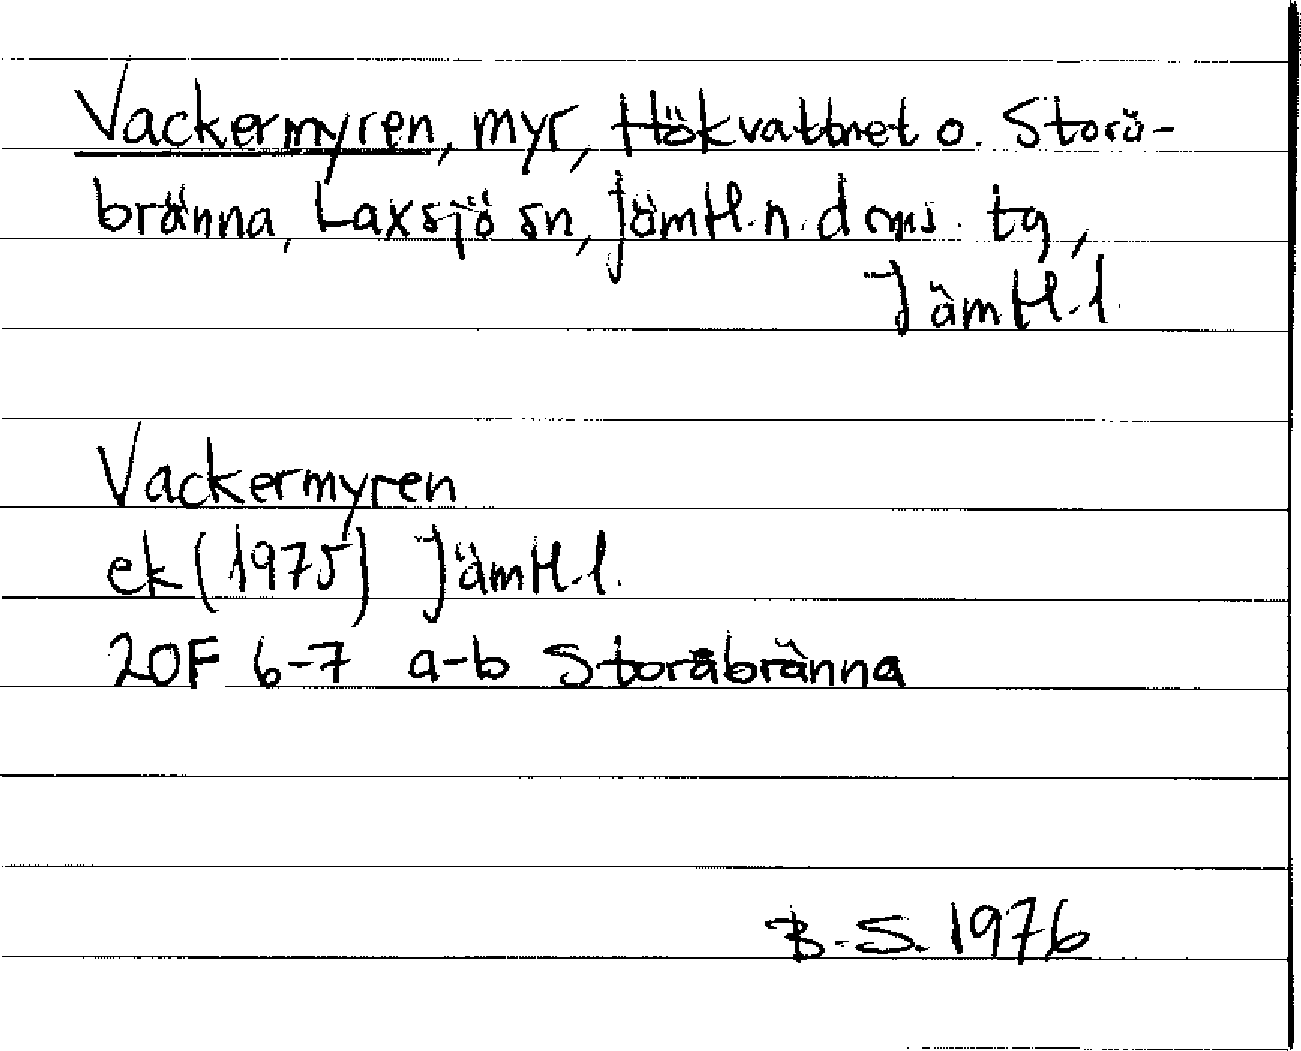 Vackermyren, myr, Hökvattnet o. Storå-
bränna, Laxsjö sn, Jämtl. n. doms. tg,
Jämtl. l.
Vackermyren
ek (1975) Jämtl. l.
20F 6-7 a-b Storåbränna
B.S. 1976